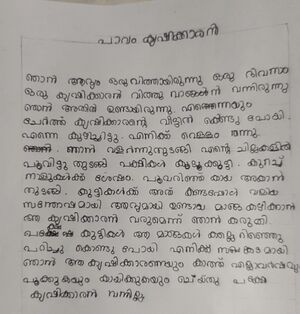 പാവം കൃഷിക്കാരൻ
ഞാൻ ആദ്യം ഒരു വിത്തായിരുന്നു ഒരു ദിവസം
ഒരു കൃഷിക്കാരൻ വിത്തു വാങ്ങാൻ വന്നിരുന്നു
ഞാൻ അതിൽ ഉണ്ടായിരുന്നു. എന്നെയും
ചേർത്ത് കൃഷിക്കാരന്റെ വീട്ടിൻ കൊണ്ടു പോയി.
എന്നെ കുഴിച്ചിട്ടു. എനിക്ക് വെള്ളം തന്നു.
ഞാൻ വളർന്നുതുടങ്ങി എന്റെ ചില്ലകളിൽ
പൂവിട്ടു തുടങ്ങി പക്ഷികൾ കൂടുകൂട്ടി. കുറച്ച്
നാളുകൾക്ക് ശേഷം. പൂവരിഞ്ഞ് കായ ആകാൻ
തുടങ്ങി. കുട്ടികൾക്ക് അത് കണ്ടപ്പോൾ വലിയ
സന്തോഷമായി ആദ്യമായി ഉണ്ടായ മാങ്ങ കഴിക്കാൻ
ആ കൃഷിക്കാരൻ വരുമെന്ന് ഞാൻ കരുതി.
പക്ഷേ കുട്ടികൾ ആ മാങ്ങകൾ കല്ലെറിഞ്ഞു
പറിച്ചു കൊണ്ടു പോയി എനിക്ക് സങ്കടമായി
ഞാൻ ആ കൃഷിക്കാരനെയും കാത്ത് എല്ലാവർഷവും
പൂക്കുകയും കായിക്കുകയും ചെയ്തു പക്ഷേ
കൃഷിക്കാരൻ വന്നില്ല